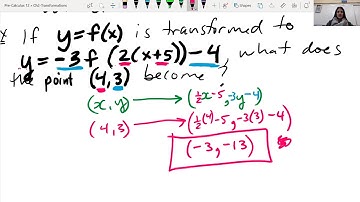 Pre-Calculus 12 • Ch1 Transformations
If y=f(x) is transformed to
y = -3f (2(x+5))-4, what does
the point (4,3) become?
(x,y) → (½x-5, -3y-4)
(4,3) → (½(4)-5, -3(3)-4)
(-3,-13)